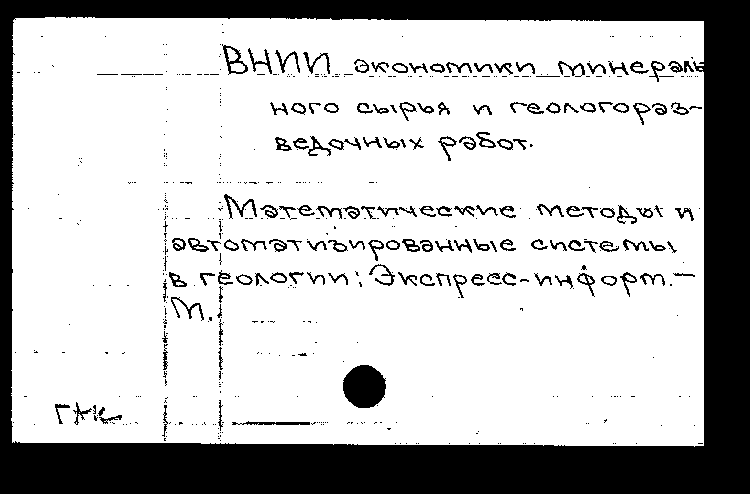 ВНИИ экономики минераль
ного сырья и геологораз-
ведочных работ.
Математические методы и
автоматизированные системы
в геологии: Экспресс-информ.—
М.